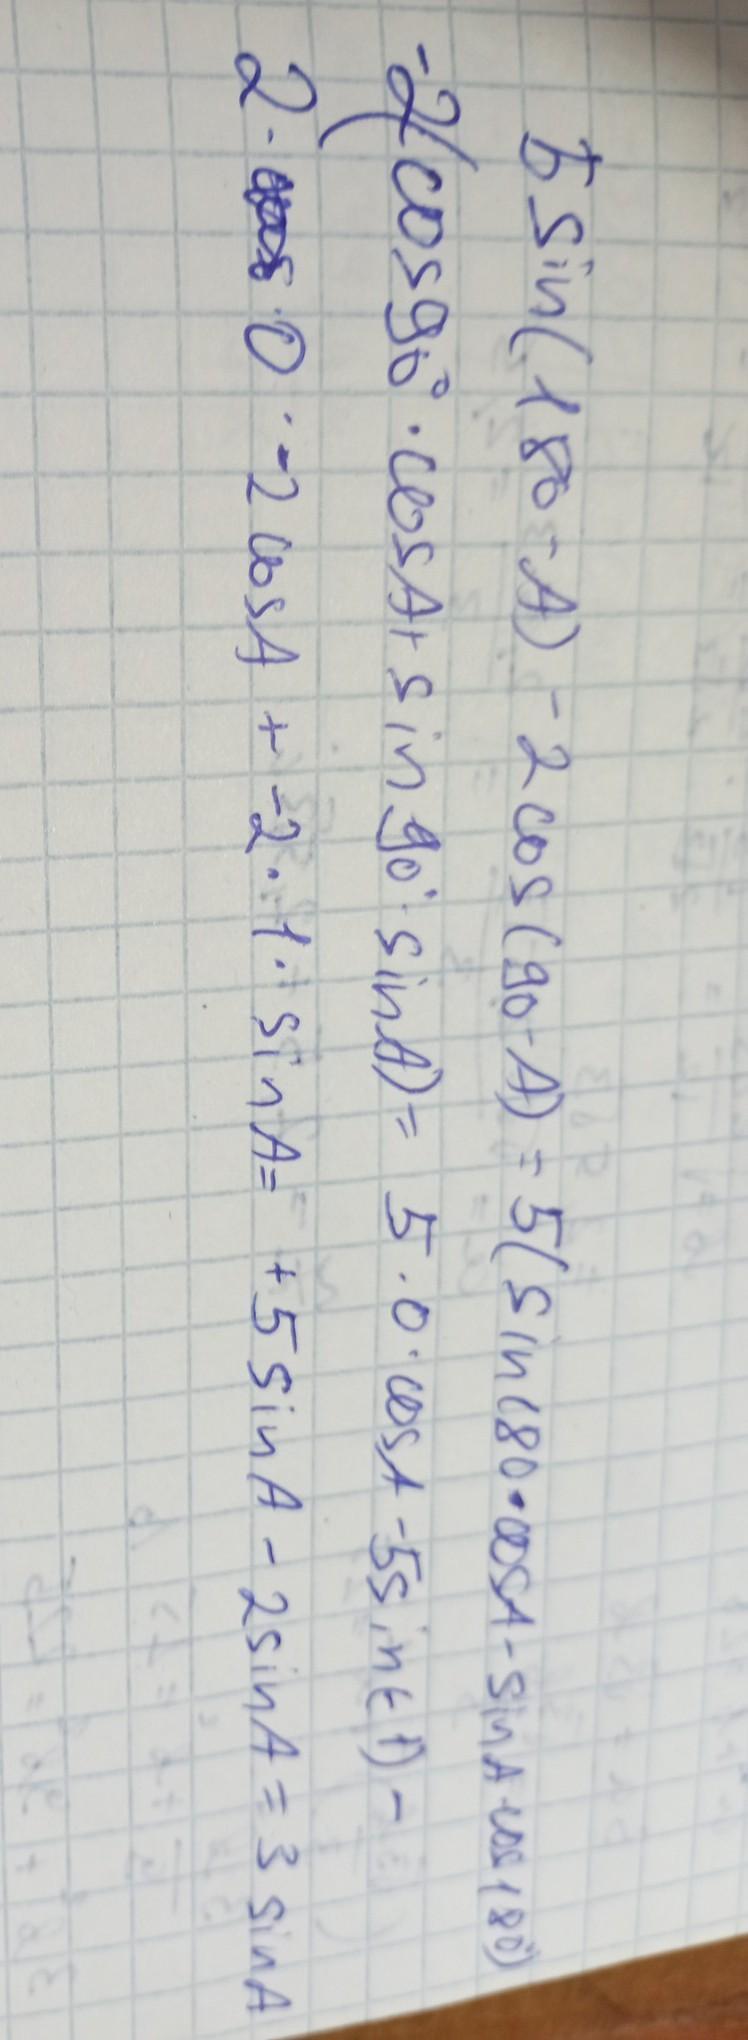 5 sin(180-A) - 2 cos(90-A) = 5(sin180•cosA - sinA cos180)
-2(cos90°·cosA + sin90°·sinA) = 5·0·cosA - 5sin(-1) -
2·0·-2cosA + -2·1·sinA = +5sinA - 2sinA = 3 sinA